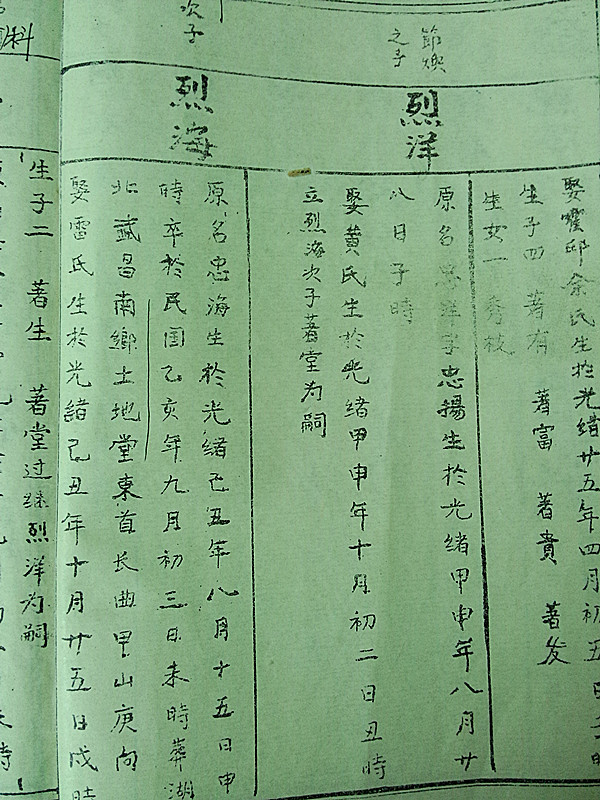 節煥
之子
次子
科
娶霍邱余氏生於光緒廿五年四月初五日子時
生子四 著有 著富 著貴 著发
生女一 秀枝
烈洋
原名忠洋字忠揚生於光緒甲申年八月廿
八日子時
娶黄氏生於光緒甲申年十月初二日丑時
立烈海次子著堂为嗣
烈海
原名忠海生於光緒己丑年八月十五日申
時卒於民国乙亥年九月初三日未時葬湖
北武昌南鄉土地堂東首长曲甲山庚向
娶雷氏生於光緒己丑年十月廿五日戍時
生子二 著生 著堂过继烈洋为嗣